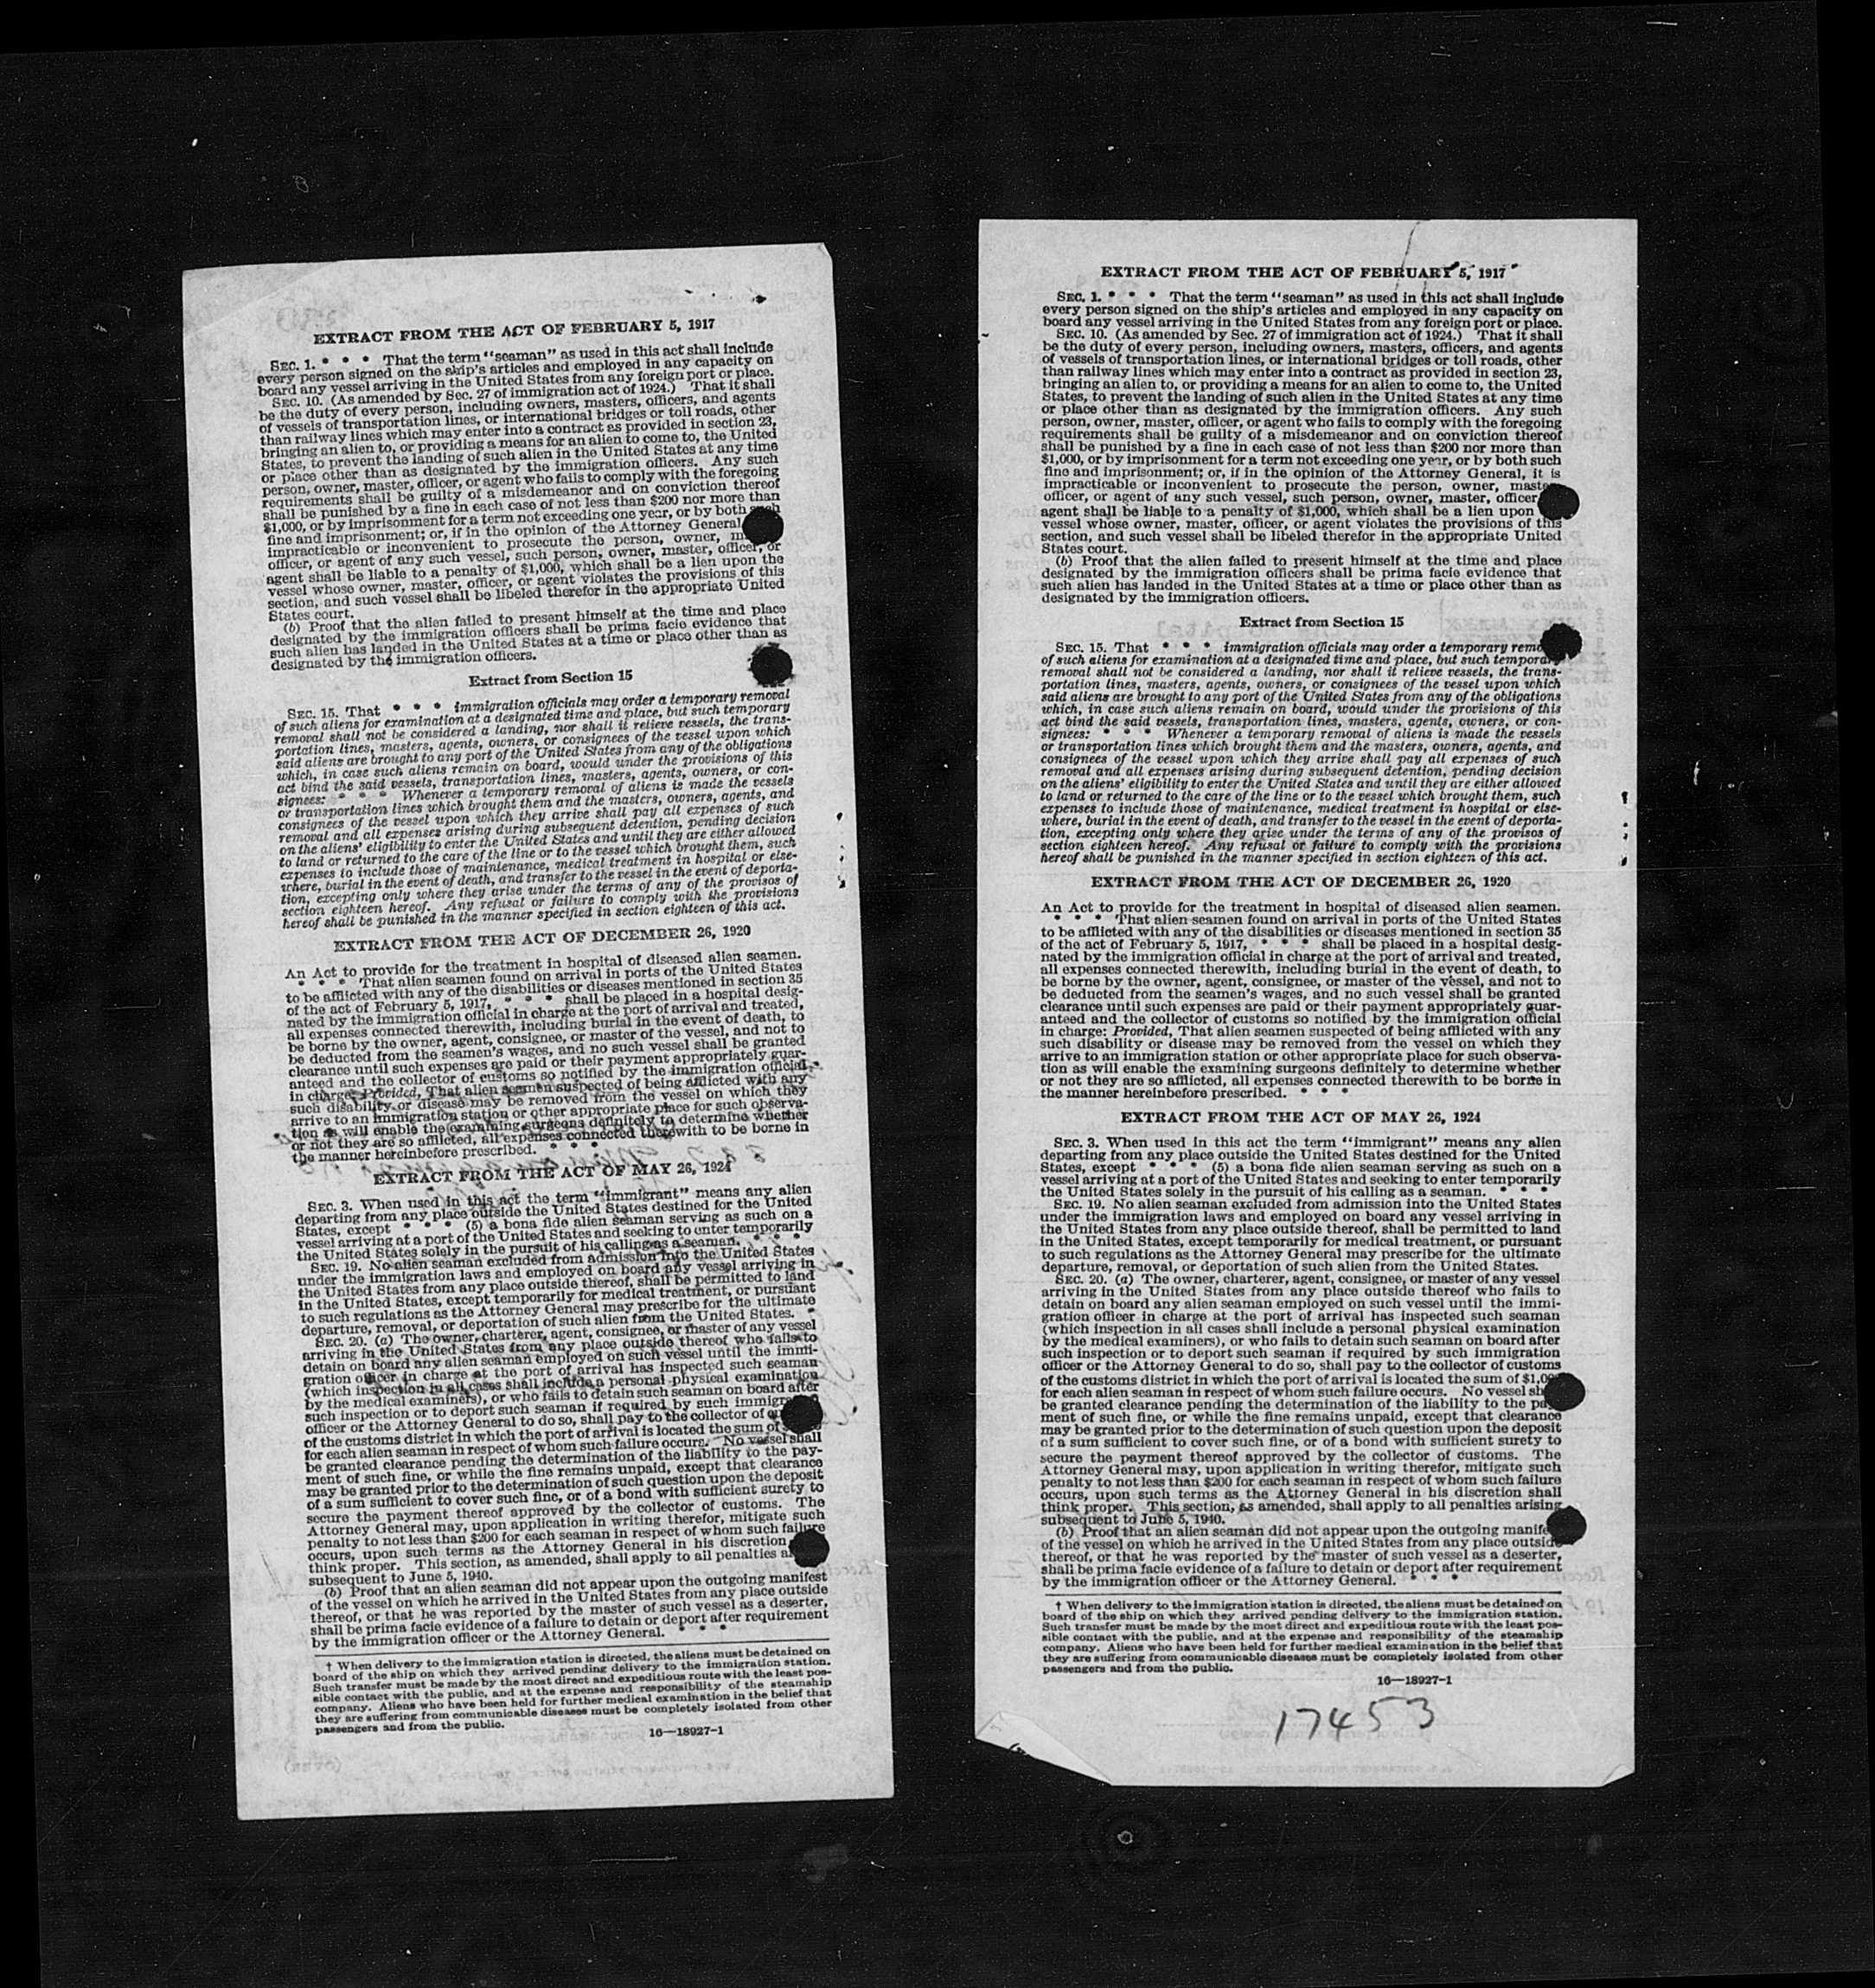 EXTRACT FROM THE ACT OF FEBRUARY 5, 1917
SEC. 1. * * * That the term "seaman" as used in this act shall include
every person signed on the ship's articles and employed in any capacity on
board any vessel arriving in the United States from any foreign port or place.
SEC. 10. (As amended by Sec. 27 of immigration act of 1924.) That it shall
be the duty of every person, including owners, masters, officers, and agents
of vessels of transportation lines, or international bridges or toll roads, other
than railway lines which may enter into a contract as provided in section 23,
bringing an alien to, or providing a means for an alien to come to, the United
States, to prevent the landing of such alien in the United States at any time
or place other than as designated by the immigration officers. Any such
person, owner, master, officer, or agent who fails to comply with the foregoing
requirements shall be guilty of a misdemeanor and on conviction thereof
shall be punished by a fine in each case of not less than $200 nor more than
$1,000, or by imprisonment for a term not exceeding one year, or by both such
fine and imprisonment; or, if in the opinion of the Attorney General,
impracticable or inconvenient to prosecute the person, owner,
officer, or agent of any such vessel, such person, owner, master, officer, or
agent shall be liable to a penalty of $1,000, which shall be a lien upon the
vessel whose owner, master, officer, or agent violates the provisions of this
section, and such vessel shall be libeled therefor in the appropriate United
States court.
(b) Proof that the alien failed to present himself at the time and place
designated by the immigration officers shall be prima facie evidence that
such alien has landed in the United States at a time or place other than as
designated by the immigration officers.
Extract from Section 15
SEC. 15. That * * * immigration officials may order a temporary removal
of such aliens for examination at a designated time and place, but such temporary
removal shall not be considered a landing, nor shall it relieve vessels, the trans-
portation lines, masters, agents, owners, or consignees of the vessel upon which
said aliens are brought to any port of the United States from any of the obligations
which, in case such aliens remain on board, would under the provisions of this
act bind the said vessels, transportation lines, masters, agents, owners, or con-
signees: * * * Whenever a temporary removal of aliens is made the vessels
or transportation lines which brought them and the masters, owners, agents, and
consignees of the vessel upon which they arrive shall pay all expenses of such
removal and all expenses arising during subsequent detention, pending decision
on the aliens' eligibility to enter the United States and until they are either allowed
to land or returned to the care of the line or to the vessel which brought them, such
expenses to include those of maintenance, medical treatment in hospital or else-
where, burial in the event of death, and transfer to the vessel in the event of deporta-
tion, excepting only where they arise under the terms of any of the provisos of
section eighteen hereof. Any refusal or failure to comply with the provisions
hereof shall be punished in the manner specified in section eighteen of this act.
EXTRACT FROM THE ACT OF DECEMBER 26, 1920
An Act to provide for the treatment in hospital of diseased alien seamen.
* * * That alien seamen found on arrival in ports of the United States
to be afflicted with any of the disabilities or diseases mentioned in section 35
of the act of February 5, 1917, * * * shall be placed in a hospital desig-
nated by the immigration official in charge at the port of arrival and treated,
all expenses connected therewith, including burial in the event of death, to
be borne by the owner, agent, consignee, or master of the vessel, and not to
be deducted from the seamen's wages, and no such vessel shall be granted
clearance until such expenses are paid or their payment appropriately guar-
anteed and the collector of customs so notified by the immigration official
in charge: Provided, That alien seamen suspected of being afflicted with any
such disability or disease may be removed from the vessel on which they
arrive to an immigration station or other appropriate place for such observa-
tion as will enable the examining surgeons definitely to determine whether
or not they are so afflicted, all expenses connected therewith to be borne in
the manner hereinbefore prescribed. * * *
EXTRACT FROM THE ACT OF MAY 26, 1924
SEC. 3. When used in this act the term "immigrant" means any alien
departing from any place outside the United States destined for the United
States, except * * * (5) a bona fide alien seaman serving as such on a
vessel arriving at a port of the United States and seeking to enter temporarily
the United States solely in the pursuit of his calling as a seaman. * * *
SEC. 19. No alien seaman excluded from admission into the United States
under the immigration laws and employed on board any vessel arriving in
the United States from any place outside thereof, shall be permitted to land
in the United States, except temporarily for medical treatment, or pursuant
to such regulations as the Attorney General may prescribe for the ultimate
departure, removal, or deportation of such alien from the United States.
SEC. 20. (a) The owner, charterer, agent, consignee, or master of any vessel
arriving in the United States from any place outside thereof who fails to
detain on board any alien seaman employed on such vessel until the immi-
gration officer in charge at the port of arrival has inspected such seaman
(which inspection in all cases shall include a personal physical examination
by the medical examiners), or who fails to detain such seaman on board after
such inspection or to deport such seaman if required by such
officer or the Attorney General to do so, shall pay to the collector of
of the customs district in which the port of arrival is located the sum of
for each alien seaman in respect of whom such failure occurs. No vessel shall
be granted clearance pending the determination of the liability to the pay-
ment of such fine, or while the fine remains unpaid, except that clearance
may be granted prior to the determination of such question upon the deposit
of a sum sufficient to cover such fine, or of a bond with sufficient surety to
secure the payment thereof approved by the collector of customs. The
Attorney General may, upon application in writing therefor, mitigate such
penalty to not less than $200 for each seaman in respect of whom such failure
occurs, upon such terms as the Attorney General in his discretion
think proper. This section, as amended, shall apply to all penalties
subsequent to June 5, 1940.
(b) Proof that an alien seaman did not appear upon the outgoing manifest
of the vessel on which he arrived in the United States from any place outside
thereof, or that he was reported by the master of such vessel as a deserter,
shall be prima facie evidence of a failure to detain or deport after requirement
by the immigration officer or the Attorney General. * * *
† When delivery to the immigration station is directed, the aliens must be detained on
board of the ship on which they arrived pending delivery to the immigration station.
Such transfer must be made by the most direct and expeditious route with the least pos-
sible contact with the public, and at the expense and responsibility of the steamship
company. Aliens who have been held for further medical examination in the belief that
they are suffering from communicable diseases must be completely isolated from other
passengers and from the public.
16—18927-1
EXTRACT FROM THE ACT OF FEBRUARY 5, 1917
SEC. 1. * * * That the term "seaman" as used in this act shall include
every person signed on the ship's articles and employed in any capacity on
board any vessel arriving in the United States from any foreign port or place.
SEC. 10. (As amended by Sec. 27 of immigration act of 1924.) That it shall
be the duty of every person, including owners, masters, officers, and agents
of vessels of transportation lines, or international bridges or toll roads, other
than railway lines which may enter into a contract as provided in section 23,
bringing an alien to, or providing a means for an alien to come to, the United
States, to prevent the landing of such alien in the United States at any time
or place other than as designated by the immigration officers. Any such
person, owner, master, officer, or agent who fails to comply with the foregoing
requirements shall be guilty of a misdemeanor and on conviction thereof
shall be punished by a fine in each case of not less than $200 nor more than
$1,000, or by imprisonment for a term not exceeding one year, or by both such
fine and imprisonment; or, if in the opinion of the Attorney General, it is
impracticable or inconvenient to prosecute the person, owner,
officer, or agent of any such vessel, such person, owner, master, officer
agent shall be liable to a penalty of $1,000, which shall be a lien upon
vessel whose owner, master, officer, or agent violates the provisions of this
section, and such vessel shall be libeled therefor in the appropriate United
States court.
(b) Proof that the alien failed to present himself at the time and place
designated by the immigration officers shall be prima facie evidence that
such alien has landed in the United States at a time or place other than as
designated by the immigration officers.
Extract from Section 15
SEC. 15. That * * * immigration officials may order a temporary
of such aliens for examination at a designated time and place, but such temporary
removal shall not be considered a landing, nor shall it relieve vessels, the trans-
portation lines, masters, agents, owners, or consignees of the vessel upon which
said aliens are brought to any port of the United States from any of the obligations
which, in case such aliens remain on board, would under the provisions of this
act bind the said vessels, transportation lines, masters, agents, owners, or con-
signees: * * * Whenever a temporary removal of aliens is made the vessels
or transportation lines which brought them and the masters, owners, agents, and
consignees of the vessel upon which they arrive shall pay all expenses of such
removal and all expenses arising during subsequent detention, pending decision
on the aliens' eligibility to enter the United States and until they are either allowed
to land or returned to the care of the line or to the vessel which brought them, such
expenses to include those of maintenance, medical treatment in hospital or else-
where, burial in the event of death, and transfer to the vessel in the event of deporta-
tion, excepting only where they arise under the terms of any of the provisos of
section eighteen hereof. Any refusal or failure to comply with the provisions
hereof shall be punished in the manner specified in section eighteen of this act.
EXTRACT FROM THE ACT OF DECEMBER 26, 1920
An Act to provide for the treatment in hospital of diseased alien seamen.
* * * That alien seamen found on arrival in ports of the United States
to be afflicted with any of the disabilities or diseases mentioned in section 35
of the act of February 5, 1917, * * * shall be placed in a hospital desig-
nated by the immigration official in charge at the port of arrival and treated,
all expenses connected therewith, including burial in the event of death, to
be borne by the owner, agent, consignee, or master of the vessel, and not to
be deducted from the seamen's wages, and no such vessel shall be granted
clearance until such expenses are paid or their payment appropriately guar-
anteed and the collector of customs so notified by the immigration official
in charge: Provided, That alien seamen suspected of being afflicted with any
such disability or disease may be removed from the vessel on which they
arrive to an immigration station or other appropriate place for such observa-
tion as will enable the examining surgeons definitely to determine whether
or not they are so afflicted, all expenses connected therewith to be borne in
the manner hereinbefore prescribed. * * *
EXTRACT FROM THE ACT OF MAY 26, 1924
SEC. 3. When used in this act the term "immigrant" means any alien
departing from any place outside the United States destined for the United
States, except * * * (5) a bona fide alien seaman serving as such on a
vessel arriving at a port of the United States and seeking to enter temporarily
the United States solely in the pursuit of his calling as a seaman. * * *
SEC. 19. No alien seaman excluded from admission into the United States
under the immigration laws and employed on board any vessel arriving in
the United States from any place outside thereof, shall be permitted to land
in the United States, except temporarily for medical treatment, or pursuant
to such regulations as the Attorney General may prescribe for the ultimate
departure, removal, or deportation of such alien from the United States.
SEC. 20. (a) The owner, charterer, agent, consignee, or master of any vessel
arriving in the United States from any place outside thereof who fails to
detain on board any alien seaman employed on such vessel until the immi-
gration officer in charge at the port of arrival has inspected such seaman
(which inspection in all cases shall include a personal physical examination
by the medical examiners), or who fails to detain such seaman on board after
such inspection or to deport such seaman if required by such immigration
officer or the Attorney General to do so, shall pay to the collector of customs
of the customs district in which the port of arrival is located the sum of
for each alien seaman in respect of whom such failure occurs. No vessel
be granted clearance pending the determination of the liability to the
ment of such fine, or while the fine remains unpaid, except that clearance
may be granted prior to the determination of such question upon the deposit
of a sum sufficient to cover such fine, or of a bond with sufficient surety to
secure the payment thereof approved by the collector of customs. The
Attorney General may, upon application in writing therefor, mitigate such
penalty to not less than $200 for each seaman in respect of whom such failure
occurs, upon such terms as the Attorney General in his discretion shall
think proper. This section, as amended, shall apply to all penalties arising
subsequent to June 5, 1940.
(b) Proof that an alien seaman did not appear upon the outgoing
of the vessel on which he arrived in the United States from any place outside
thereof, or that he was reported by the master of such vessel as a deserter,
shall be prima facie evidence of a failure to detain or deport after requirement
by the immigration officer or the Attorney General. * * *
† When delivery to the immigration station is directed, the aliens must be detained on
board of the ship on which they arrived pending delivery to the immigration station.
Such transfer must be made by the most direct and expeditious route with the least pos-
sible contact with the public, and at the expense and responsibility of the steamship
company. Aliens who have been held for further medical examination in the belief that
they are suffering from communicable diseases must be completely isolated from other
passengers and from the public.
16—18927-1
17453